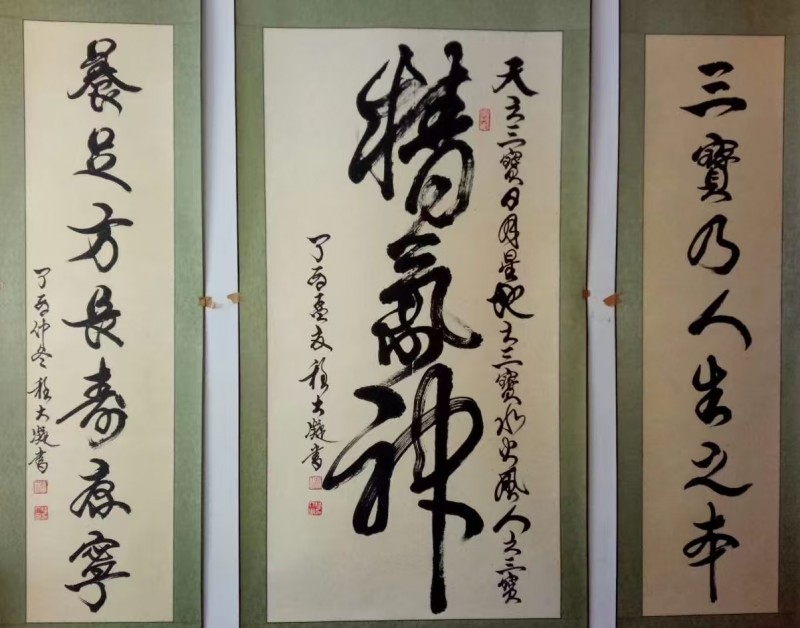 三寶乃人生之本
天有三寶日月星地有三寶水火風人有三寶
精氣神
養足方長壽康寧
丁酉仲冬